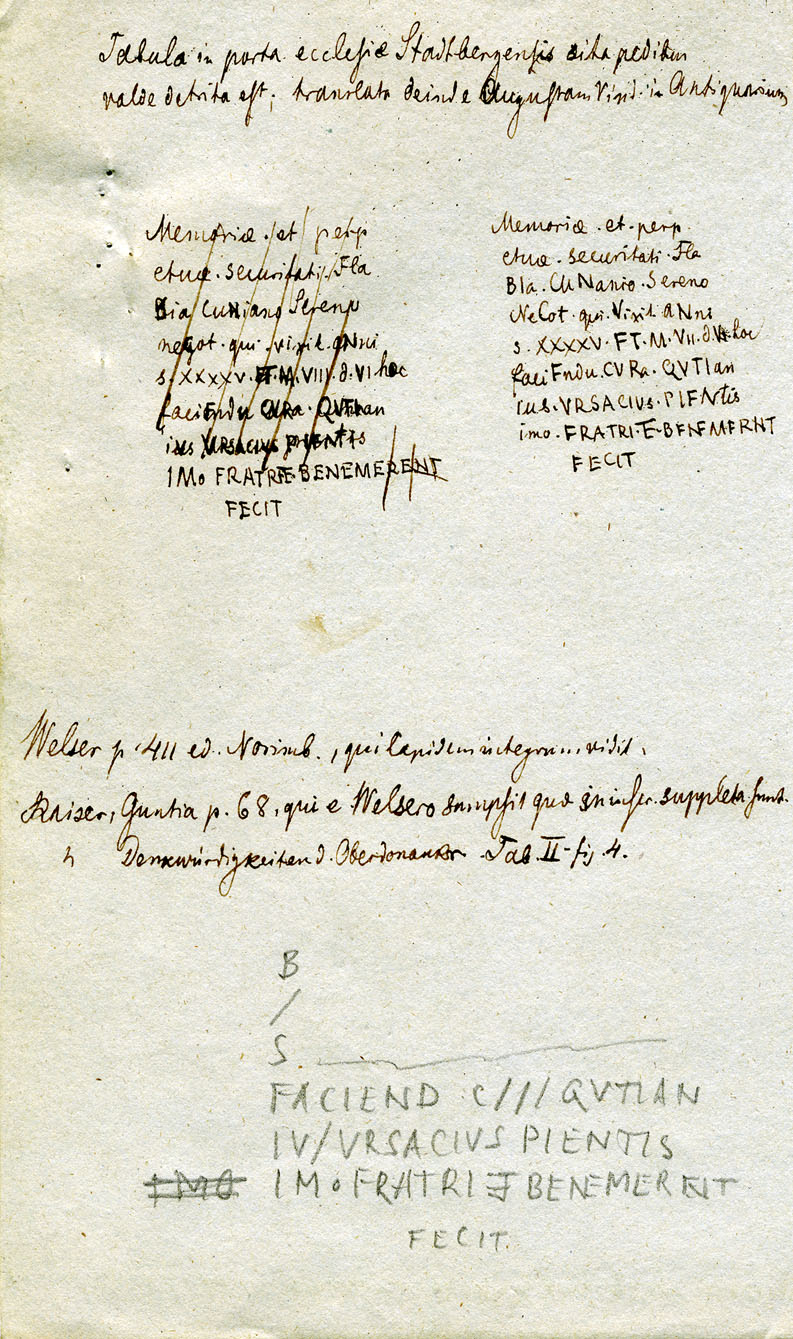 Tabula in porta ecclesiæ Stadtbergensis sita peditum
valde detrita est; translata deinde Augustam Vind. in Antiquarium
Memoriæ . et perp
etuæ . securitati . Fla
Bia CuNiano Sereno
negot . qui . vixit . aNni
s . XXXXV . ET . M . VIII . d . VI hoc
faciEndu CURa . QVTIan
ius URSACIUS PIENTis
IMo FRATRI E BENEMERENT
FECIT
Memoriæ . et . perp
etuæ . securitati . Fla
Bla . CUNanio . Sereno
NeGot . qui . Vixit . aNni
s . XXXXV . ET . M . VII . d . VI . hoc
faciEndu . CVRa . QVTIan
ius . VRSACIUS . PIENtis
imo . FRATRI . E . BENEMERNT
FECIT
Welser p. 411 ed. Norimb., qui lapidem integrum vidit,
Raiser, Guntia p. 68, qui e Welsero sumpsit quæ in infer. suppleta sunt.
" Denkwürdigkeiten d. Oberdonaukr. Tab. II fig. 4.
B
/
S
FACIEND C/// QVTIAN
IV/VRSACIVS PIENTIS
IMO IMo FRATRI E BENEMERENT
FECIT.